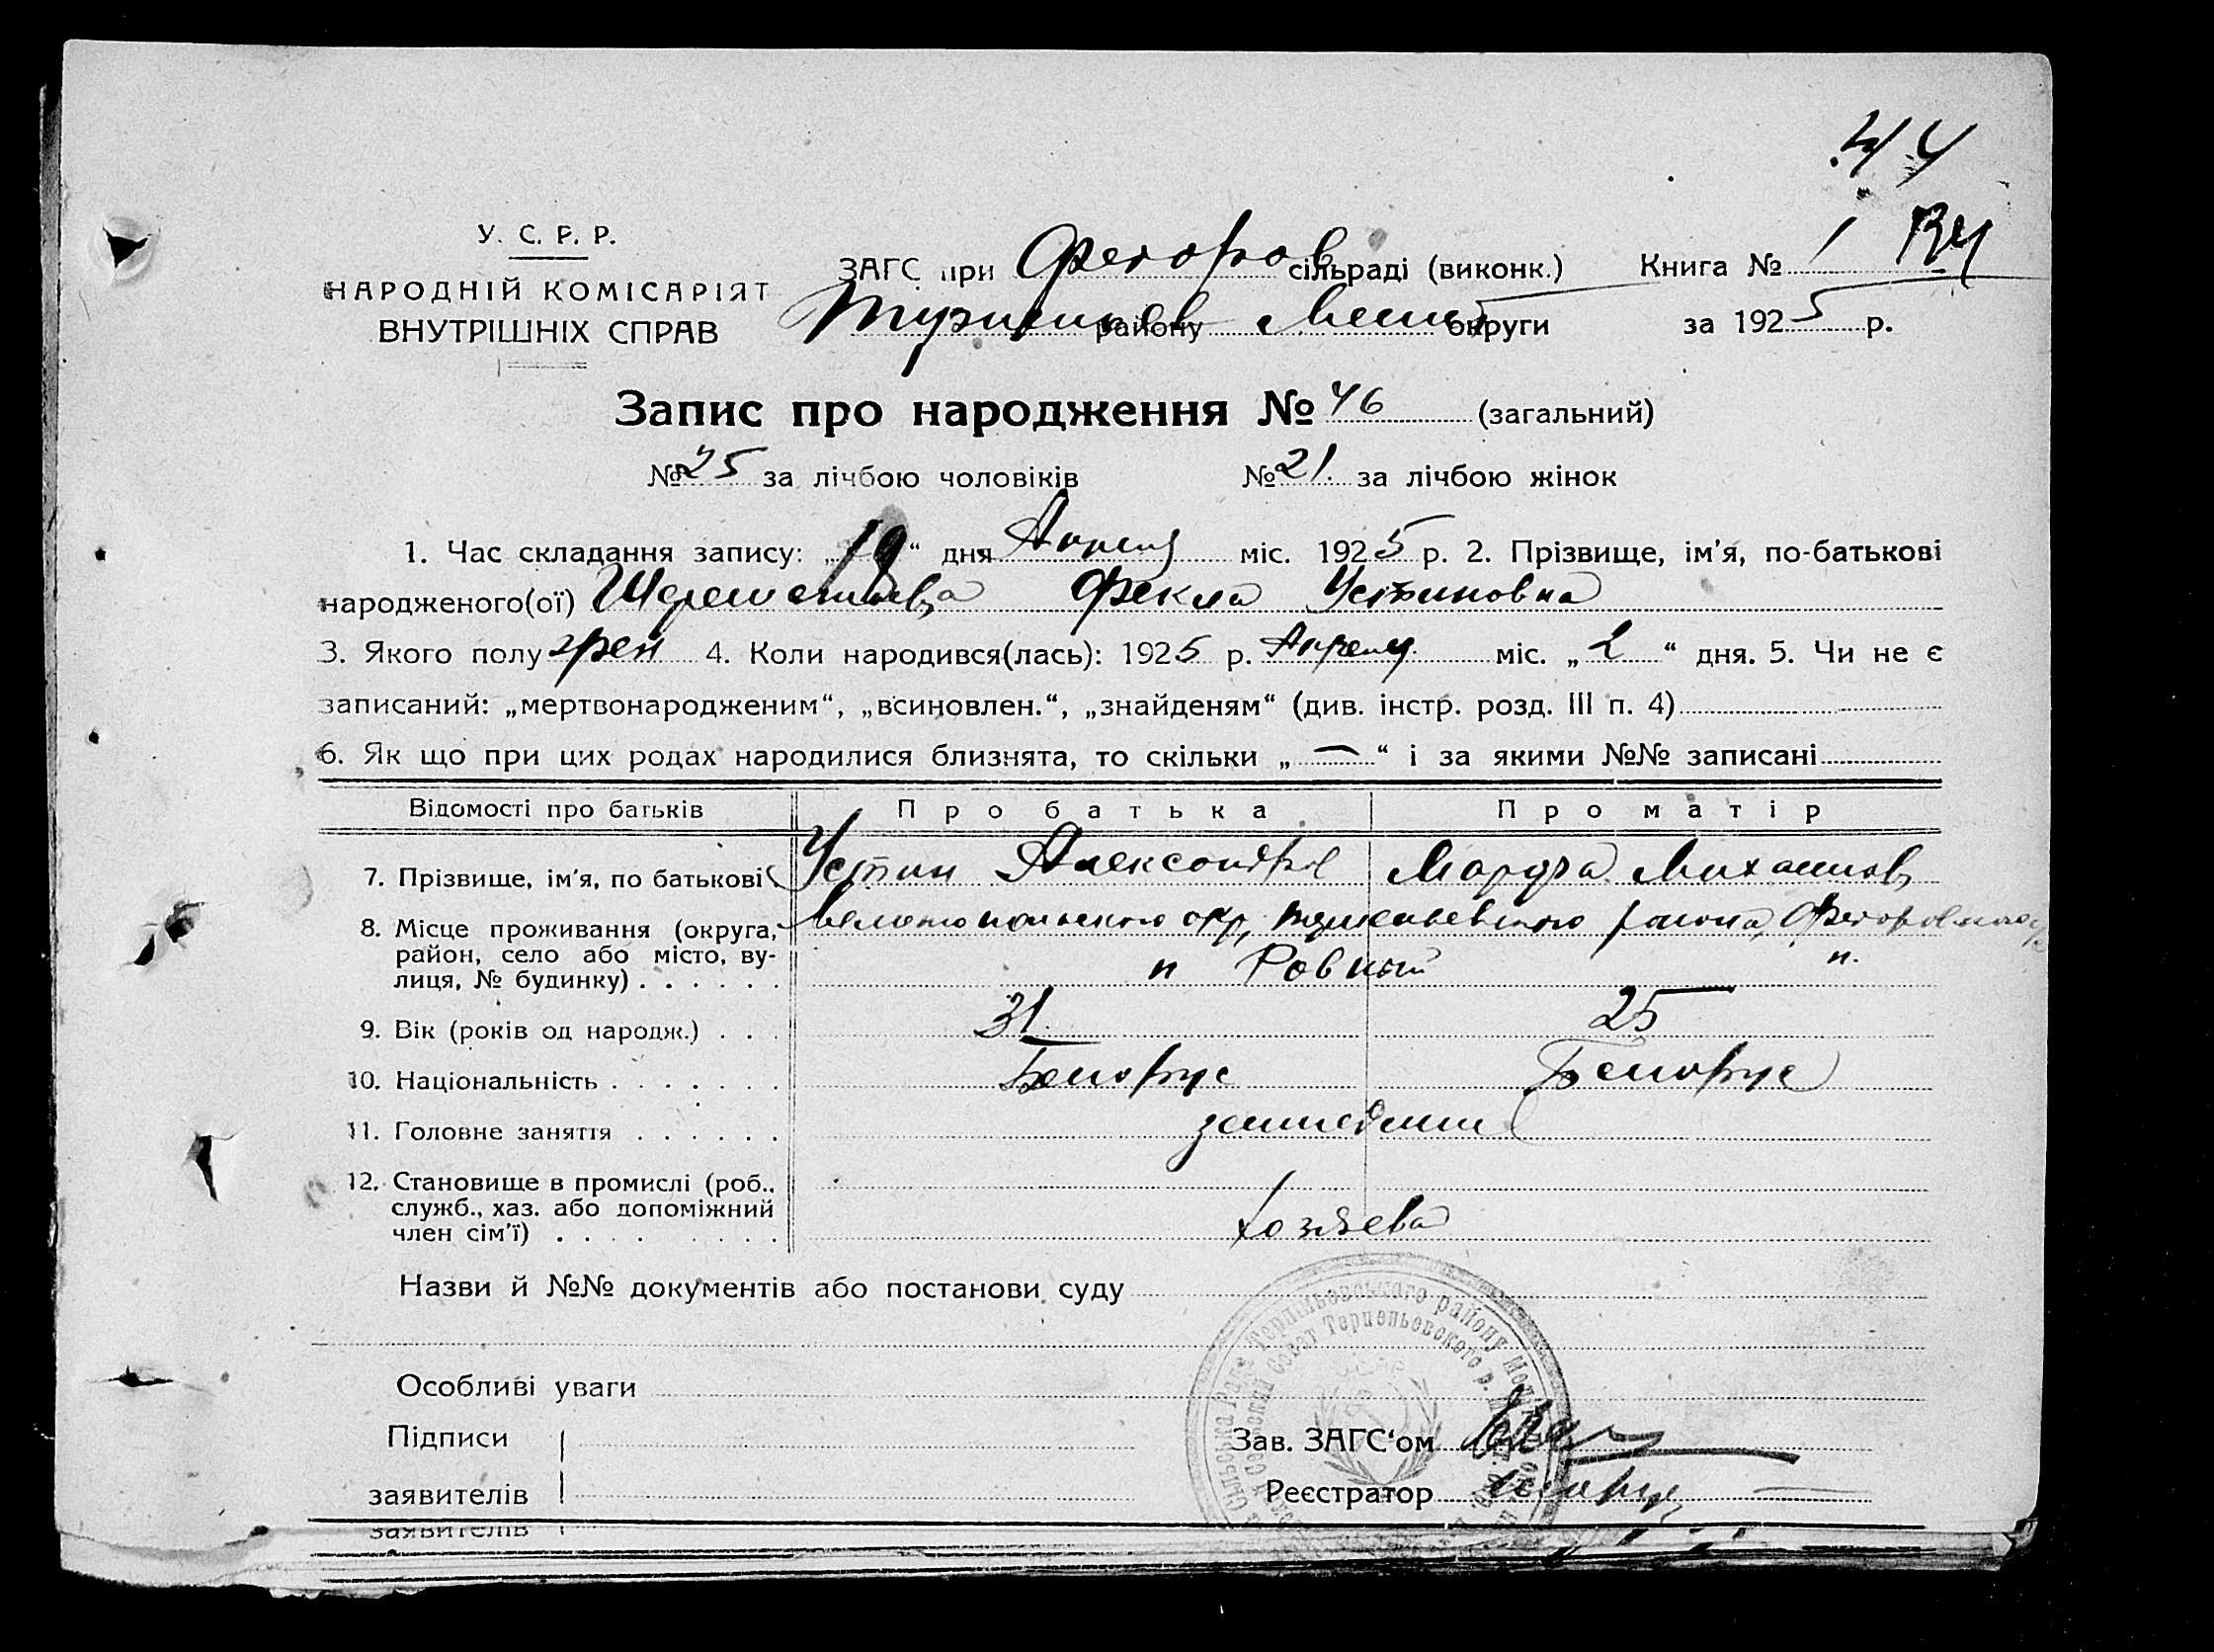 44
У. С. Р. Р.
НАРОДНІЙ КОМІСАРІЯТ
ВНУТРІШНІХ СПРАВ
ЗАГС при Федоров сільраді (виконк.) Книга № 1
району Мелит округи за 1925 р.
Запис про народження № 46 (загальний)
№ 25 за лічбою чоловіків № 21. за лічбою жінок
1. Час складання запису: „19“ дня Апреля міс. 1925 р. 2. Прізвище, ім'я, по-батькові
народженого(ої) Фекла Устиновна
3. Якого полу жен 4. Коли народився(лась): 1925 р. Апреля міс. „2“ дня. 5. Чи не є
записаний: „мертвонародженим“, „всиновлен.“, „знайденям“ (див. інстр. розд. III п. 4)
6. Як що при цих родах народилися близнята, то скільки „—“ і за якими №№ записані
Відомості про батьків Про батька Про матір
7. Прізвище, ім'я, по батькові Устин Александров Марфа Михайлов
8. Місце проживання (округа, Мелитопольского окр, района, Федоровского
район, село або місто, ву- п Ровный п.
лиця, № будинку)
9. Вік (років од народж.) 31 25
10. Національність Белорус Белорус
11. Головне заняття земледелии
12. Становище в промислі (роб.,
служб., хаз. або допоміжний
член сім'ї) хозяева
Назви й №№ документів або постанови суду
Особливі уваги
Підписи Зав. ЗАГС'ом
заявителів Реєстратор
заявителів